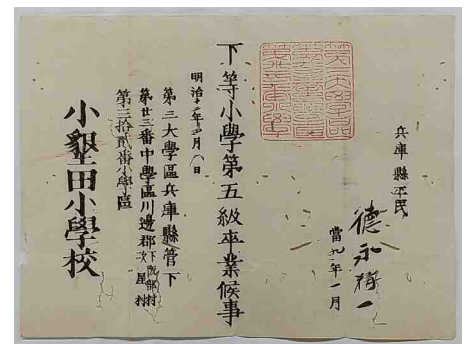 兵庫縣平民
德永 一
當九年一月
下等小學第五級卒業候事
明治十二年 月八日
第三大學區兵庫縣管下
第廿三番中學區川邊郡
下阪部村
次屋村
第三拾貳番小學區
小墾田小學校